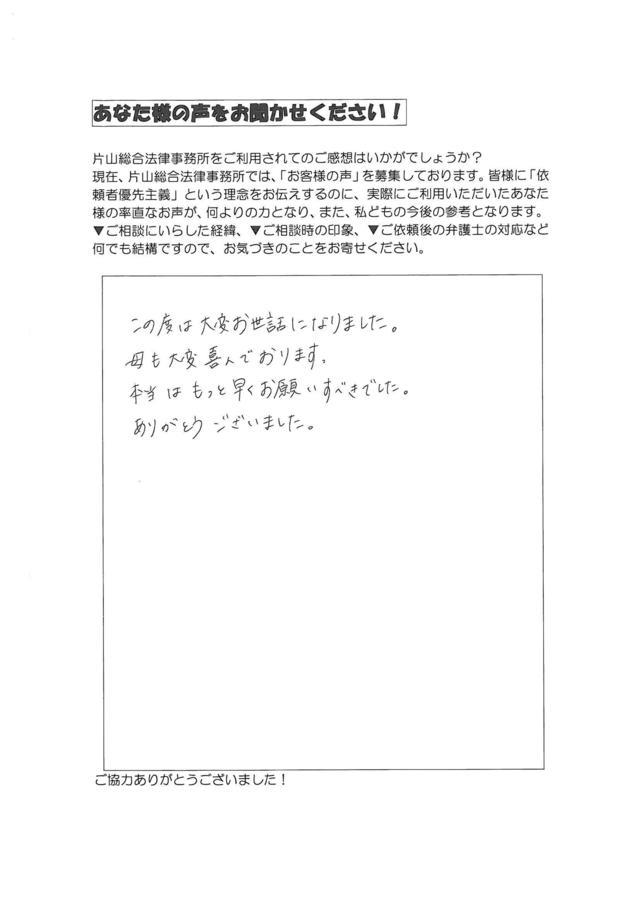 あなた様の声をお聞かせください！
片山総合法律事務所をご利用されてのご感想はいかがでしょうか？
現在、片山総合法律事務所では、「お客様の声」を募集しております。皆様に「依
頼者優先主義」という理念をお伝えするのに、実際にご利用いただいたあなた
様の率直なお声が、何よりの力となり、また、私どもの今後の参考となります。
▼ご相談にいらした経緯、▼ご相談時の印象、▼ご依頼後の弁護士の対応など
何でも結構ですので、お気づきのことをお寄せください。
この度は大変お世話になりました。
母も大変喜んでおります。
本当はもっと早くお願いすべきでした。
ありがとうございました。
ご協力ありがとうございました！